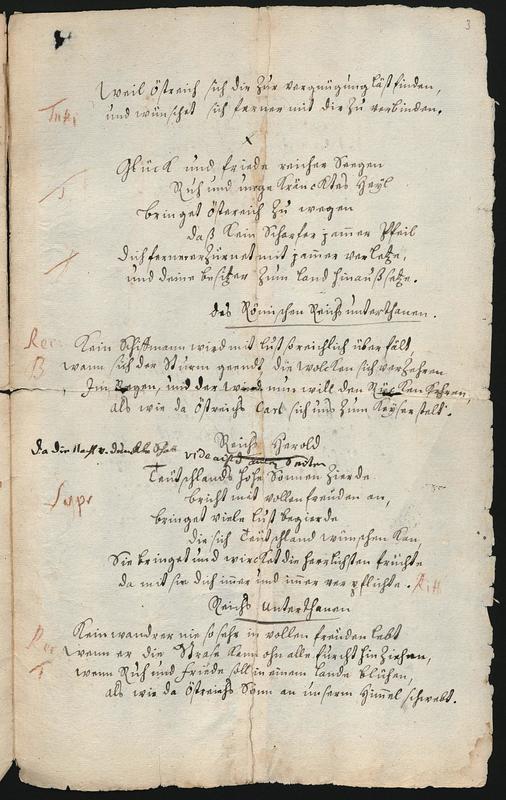 3
Weil Östreich sich die zur vergnügung läst finden,
und wünschet sich ferner mit dir zu verbinden.
Glück und friede reicher Seegen
Ruh und Heyl
bringet Östereich zu wegen
daß kein Scharfer jammer Pfeil
dich ferner erzürnet mit jammer verletze,
und deine besitzer zum land hinaußsetze.
des Römischen Reichs unterthanen.
Rec
Kein Schiffmann wird mit lust so reichlich überfält
B
wenn sich der Sturm geendt, die wolcken sich verzehren
Im Regen, und der wind nun will den Rücken kehren
als wie da Östreichs Carl sich uns zum Keyser stelt.
Reichs Herold
da die Nacht v. dunckle
vide auf d. andern Seiten
Teütschlands hohe Sonnen Zierde
bricht mit vollen freuden an,
Sopr
bringet viele lust begierde
die sich Teütschland wünschen kan
Sie bringet und wircket die herrlichsten früchte
da mit sie dich immer und immer verpflichte.
Reichs Unterthanen
Rec
Kein wandrer nie so sehr in vollen freuden lebt
wenn er die Straße kan ohn alle furcht hin ziehen,
T
wenn Ruh und friede soll in einem lande blühen,
als wie da Östreichs Sonn an unserm Himmel schwebt.